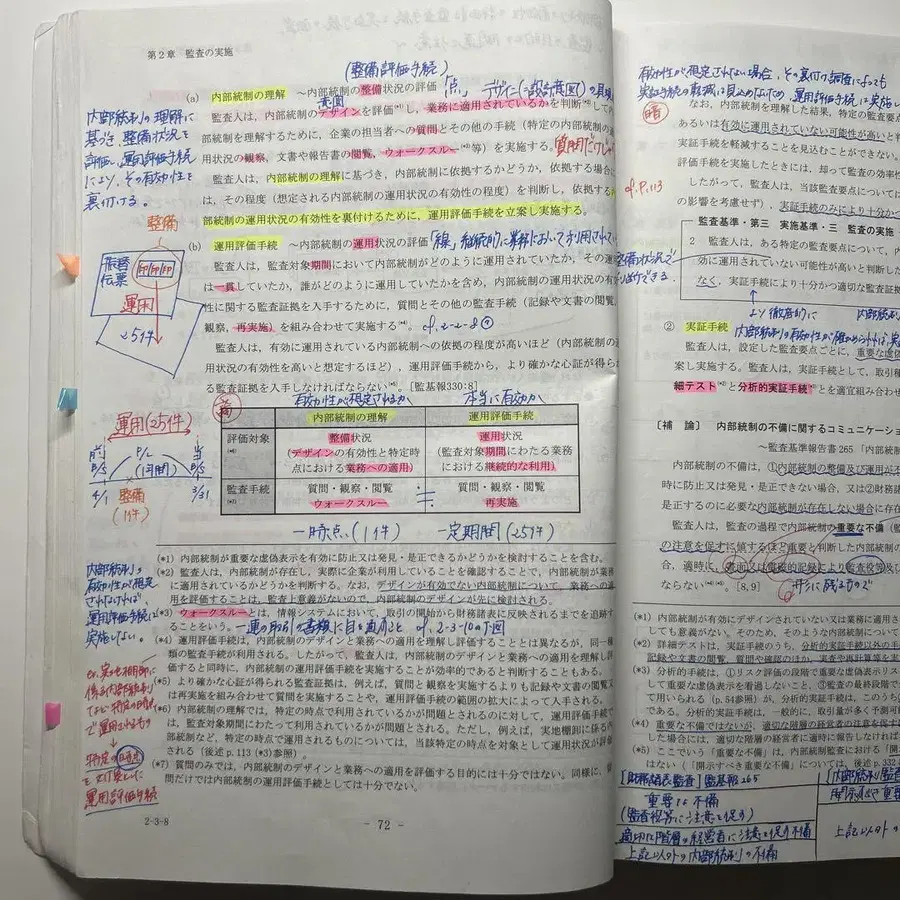 第２章　監査の実施
(整備評価手続)
(a)　内部統制の理解　～内部統制の整備状況の評価「点」　デザイン(＝設計意図)の具現
意図
監査人は、内部統制のデザインを評価し、業務に適用されているかを判断
統制を理解するために、企業の担当者への質問とその他の手続（特定の内部統制の
用状況の観察、文書や報告書の閲覧、ウォークスルー(*3)等）を実施する。質問だけじゃ
監査人は、内部統制の理解に基づき、内部統制に依拠するかどうか、依拠する場合に
は、その程度（想定される内部統制の運用状況の有効性の程度）を判断し、依拠する
部統制の運用状況の有効性を裏付けるために、運用評価手続を立案し実施する。
内部統制の理解に
基づき、整備状況を
評価し、運用評価手続
により、その有効性を
裏付ける。
(b)　運用評価手続　～内部統制の運用状況の評価「線」継続的に業務において利用されて
監査人は、監査対象期間において内部統制がどのように運用されていたか、その運
は一貫していたか、誰がどのように運用していたかを含め、内部統制の運用状況の有
性に関する監査証拠を入手するために、質問とその他の監査手続（記録や文書の閲覧
観察、再実施）を組み合わせて実施する(*4)。cf.2-2-8
監査人は、有効に運用されている内部統制への依拠の程度が高いほど（内部統制の運
用状況の有効性を高いと想定するほど）、運用評価手続から、より確かな心証が得られ
る監査証拠を入手しなければならない(*5)。[監基報330:8]
整備
振替
伝票
印印印
運用
25件
有効性が想定されるか　本当に有効か
内部統制の理解　運用評価手続
評価対象(*6)　整備状況（デザインの有効性と特定時点における業務への適用）　運用状況（監査対象期間にわたる業務における継続的な利用）
監査手続(*7)　質問・観察・閲覧　ウォークスルー　質問・観察・閲覧　再実施
一時点(1件)　一定期間(25件)
運用(25件)
前　P/L　当
B/S　(1年間)　B/S
4/1　整備　3/31
(1件)
(*1) 内部統制が重要な虚偽表示を有効に防止又は発見・是正できるかどうかを検討することを含む。
(*2) 監査人は、内部統制が存在し、実際に企業が利用していることを確認することで、内部統制が業務
に適用されているかどうかを判断する。なお、デザインが有効でない内部統制について、業務への適
用を評価することは、監査上意義がないので、内部統制のデザインが先に検討される。
(*3) ウォークスルーとは、情報システムにおいて、取引の開始から財務諸表に反映されるまでを追跡す
ることをいう。一連の取引の書類に目を通すこと cf.2-3-10の下図
(*4) 運用評価手続は、内部統制のデザインと業務への適用を理解し評価することとは異なるが、同一種
類の監査手続が利用される。したがって、監査人は、内部統制のデザインと業務への適用を理解し評
価すると同時に、内部統制の運用評価手続を実施することが効率的であると判断することもある。
(*5) より確かな心証が得られる監査証拠は、例えば、質問を実施するよりも記録や文書の閲覧又
は再実施を組み合わせて質問を実施することや、運用評価手続の範囲の拡大によって入手される。
(*6) 内部統制の理解では、特定の時点で利用されているかが問題とされるのに対して、運用評価手続で
は、監査対象期間にわたって利用されているかが問題とされる。ただし、例えば、実地棚卸に係る内
部統制など、特定の時点で運用されるものについては、当該特定の時点を対象として運用状況が評価
される（後述 p.113 (*3)参照）。
(*7) 質問のみでは、内部統制のデザインと業務への適用を評価する目的には十分ではない。同様に、質
問だけでは内部統制の運用評価手続としては十分でない。
内部統制の
有効性が想定
されなければ、
運用評価手続は
実施しない。
ex. 実地棚卸に
係る内部統制
など 特定の時点
で運用されるもの
特定の時点
を対象として
運用評価手続
2-3-8
－ 72 －
有効性が想定されない場合、その裏付け調査によっても
実証手続の軽減は見込めないため、運用評価手続は実施し
暗
なお、内部統制を理解した結果、特定の監査要点
あるいは有効に運用されていない可能性が高いと判
実証手続を軽減することを見込むことができない。
評価手続を実施したときには、却って監査の効率性
cf.P.113
したがって、監査人は、当該監査要点については
の影響を考慮せず）、実証手続のみにより十分かつ
監査基準・第三　実施基準・三　監査の実施・
２　監査人は、ある特定の監査要点について、内
効に運用されていない可能性が高いと判断した
なく、実証手続により十分かつ適切な監査証拠
整備の状況で
より徹底的に　内部統
②　実証手続
監査人は、設定した監査要点ごとに、重要な虚偽
案し実施する。監査人は、実証手続として、取引種
細テスト(*2)と分析的実証手続(*3)とを適宜組み合わせ
〔補　論〕　内部統制の不備に関するコミュニケーショ
～監査基準報告書 265「内部統
内部統制の不備は、①内部統制の整備及び運用が不
時に防止又は発見・是正できない場合、又は②財務諸
是正するのに必要な内部統制が存在しない場合に存在
監査人は、監査の過程で内部統制の重要な不備（監
の注意を促すに値するほど重要と判断した内部統制の
合、適時に、書面又は電磁的記録により監査役等及び
ならない(*5)。[8、9]　形に残るもので
(*1) 内部統制が有効にデザインされていない又は業務に適用さ
しても意義がない。そのため、そのような内部統制について
(*2) 詳細テストは、実証手続のうち、分析的実証手続以外の手
記録や文書の閲覧、質問や確認のほか、実査や再計算等を実
(*3) 分析的手続は、①リスク評価の段階で重要な虚偽表示
して重要な虚偽表示を看過しないこと、③監査の最終段階で
て用いられる（p.54参照）が、分析的実証手続は、このうち
である。分析的実証手続は、一般的に、取引量が多く予測可
(*4) 重要な不備ではないが、適切な階層の経営者の注意を得す
した場合には、適切な階層の経営者に適時に報告しなければ
(*5) ここでいう「重要な不備」は、内部統制監査における「開
はない（「開示すべき重要な不備」については、後述 p.332
【財務諸表監査】監基報265　【内部統制監査
重要な不備　開示すべき重要
(監査役等に注意を促す)
適切な階層の経営者に注意を促す不備　上記以外の
上記以外の内部統制の不備